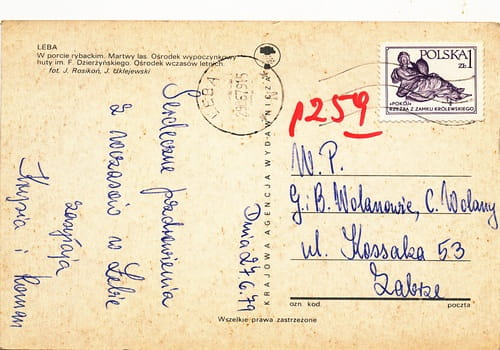 LEBA
W porcie rybackim. Martwy las. Ośrodek wypoczynkowy
huty im. F. Dzierżyńskiego. Ośrodek wczasów letnich.
fot. J. Rosikoń, J. Uklejewski
ŁEBA
POLSKA 1
ZŁ
«POKÓJ»
RZEŹBA Z ZAMKU KRÓLEWSKIEGO
p259
Serdeczne pozdrowienia
z wczasów w Łebie
zasyłają
Krysia i Roman
Dnia 27.6.79
KRAJOWA AGENCJA WYDAWNICZA
W.P.
G. i B. Wolanowie, C. Wolany
ul. Kossaka 53
Zabrze
ozn. kod. poczta
Wszelkie prawa zastrzeżone